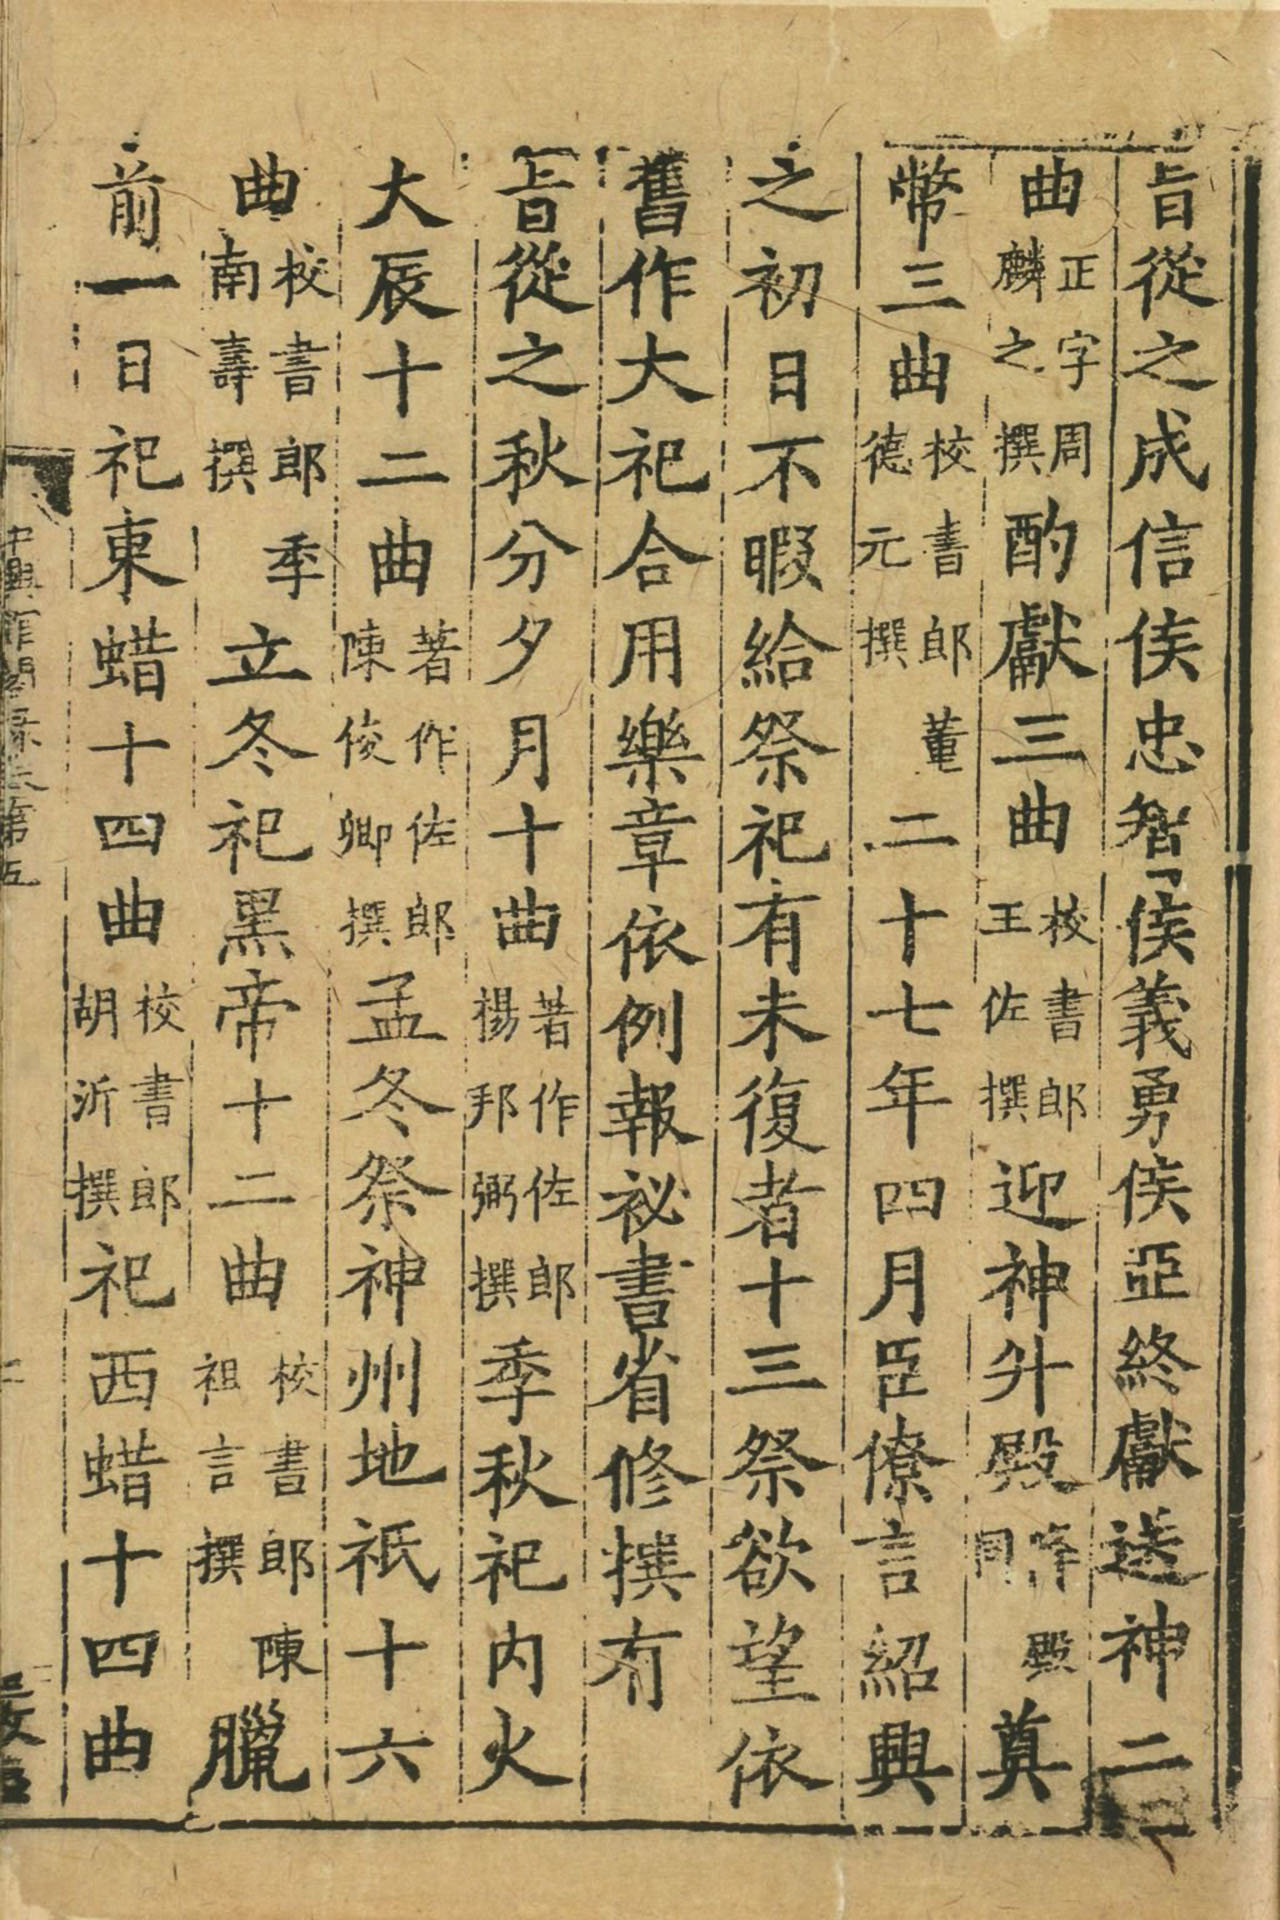 旨從之成信侯忠智侯義勇侯亞終獻送神二
曲正字周麟之撰酌獻三曲校書郎王佐撰迎神升殿降殿同奠
幣三曲校書郎董德元撰二十七年四月臣僚言紹興
之初日不暇給祭祀有未復者十三祭欲望依
舊作大祀合用樂章依例報祕書省修撰有
旨從之秋分夕月十曲著作佐郎楊邦弼撰季秋祀內火
大辰十二曲著作佐郎陳俊卿撰孟冬祭神州地祇十六
曲校書郎季南壽撰立冬祀黑帝十二曲校書郎陳祖言撰臘
前一日祀東蜡十四曲校書郎胡沂撰祀西蜡十四曲
中興館閣錄卷第五
二